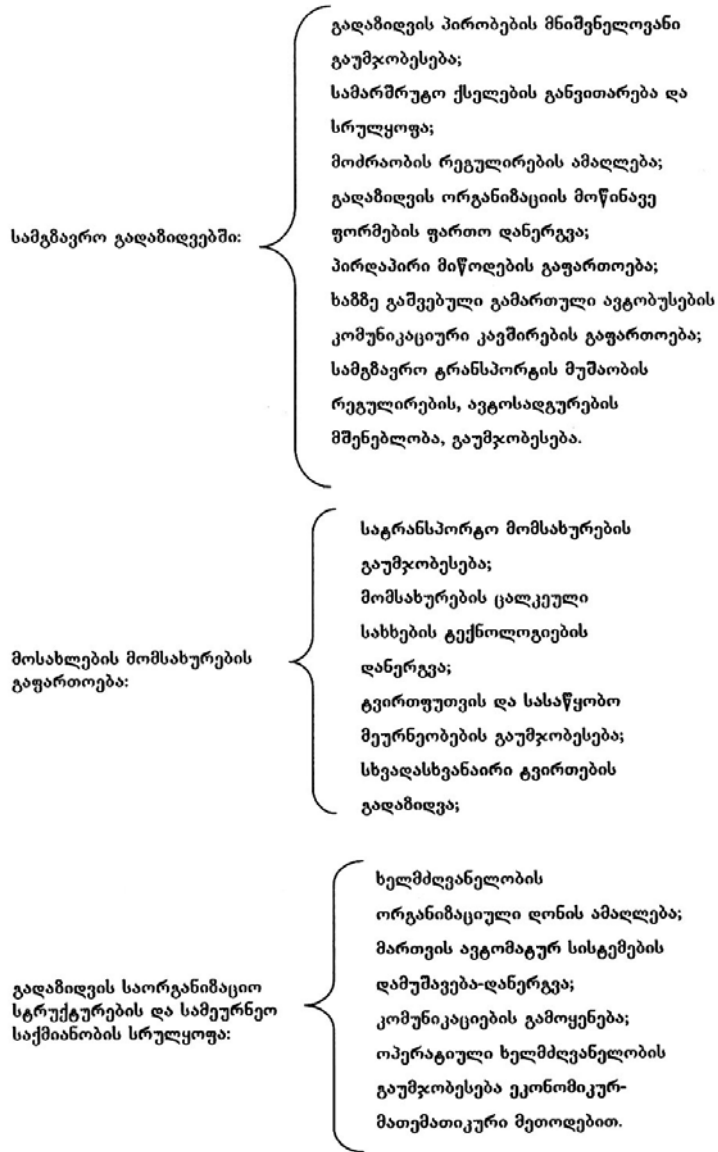 სამგზავრო გადაზიდვებში:
გადაზიდვის პირობების მნიშვნელოვანი
გაუმჯობესება;
სამარშრუტო ქსელების განვითარება და
სრულყოფა;
მოძრაობის რეგულირების ამაღლება;
გადაზიდვის ორგანიზაციის მოწინავე
ფორმების ფართო დანერგვა;
პირდაპირი მიწოდების გაფართოება;
ხაზზე გაშვებული გამართული ავტობუსების
კომუნიკაციური კავშირების გაფართოება;
სამგზავრო ტრანსპორტის მუშაობის
რეგულირების, ავტოსადგურების
მშენებლობა, გაუმჯობესება.
მოსახლების მომსახურების
გაფართოება:
სატრანსპორტო მომსახურების
გაუმჯობესება;
მომსახურების ცალკეული
სახხების ტექნოლოგიების
დანერგვა;
ტვირთფუთვის და სასაწყობო
მეურნეობების გაუმჯობესება;
სხვადასხვანაირი ტვირთების
გადაზიდვა;
გადაზიდვის საორგანიზაციო
სტრუქტურების და სამეურნეო
საქმიანობის სრულყოფა:
ხელმძღვანელობის
ორგანიზაციული დონის ამაღლება;
მართვის ავტომატურ სისტემების
დამუშავება-დანერგვა;
კომუნიკაციების გამოყენება;
ოპერატიული ხელმძღვანელობის
გაუმჯობესება ეკონომიკურ-
მათემათიკური მეთოდებით.